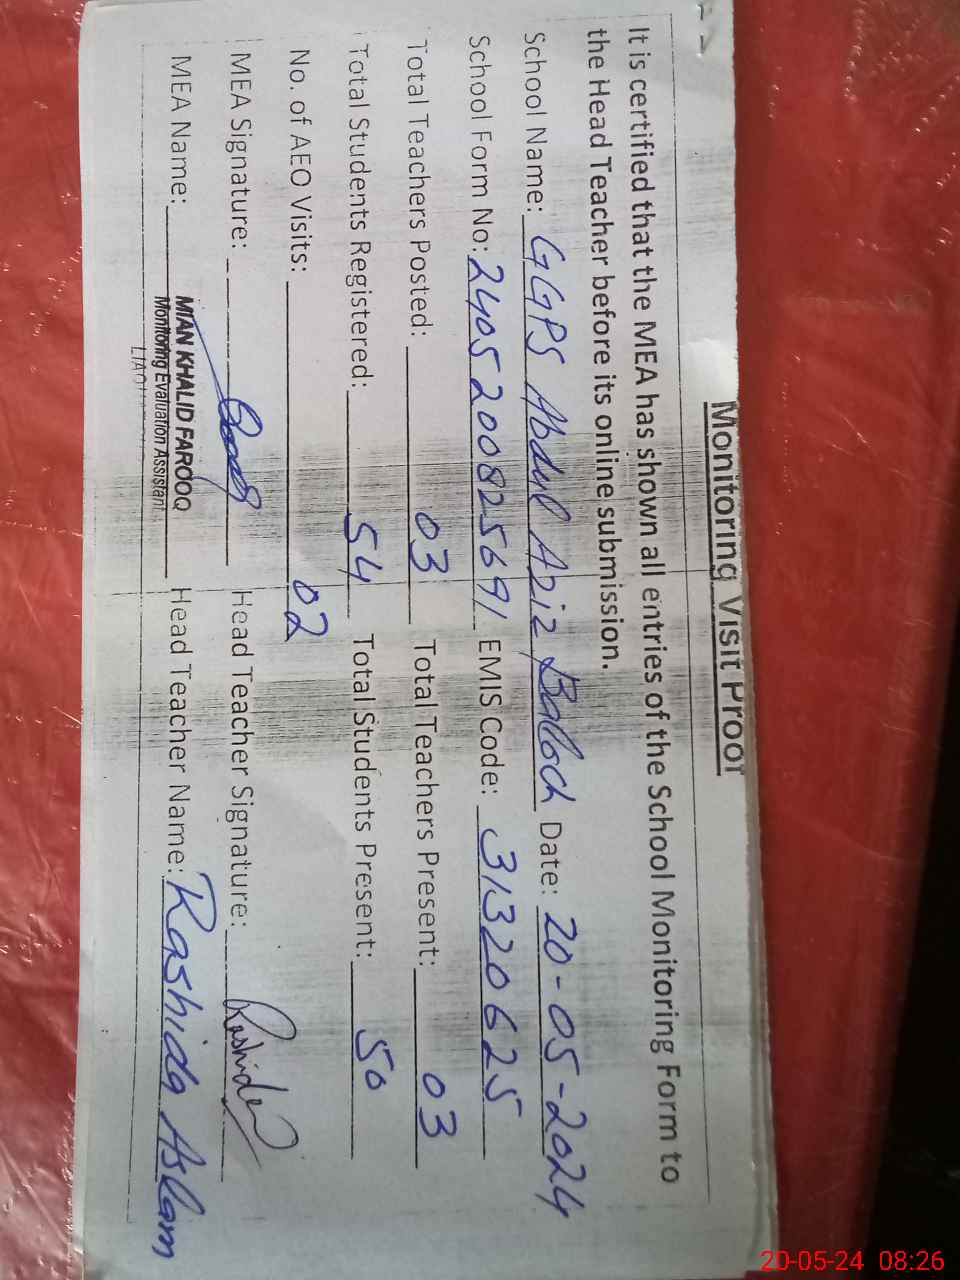 Monitoring Visit Proof
It is certified that the MEA has shown all entries of the School Monitoring Form to
the Head Teacher before its online submission.
School Name: GGPS Abdul Aziz Baloch Date: 20-05-2024
School Form No: 2405200825691 EMIS Code: 31320625
Total Teachers Posted: 03 Total Teachers Present: 03
Total Students Registered: 54 Total Students Present: 50
No. of AEO Visits: 02
MEA Signature: Head Teacher Signature: Rashida
MEA Name: MIAN KHALID FAROOQ Head Teacher Name: Rashida Aslam
Monitoring Evaluation Assistant
20-05-24 08:26